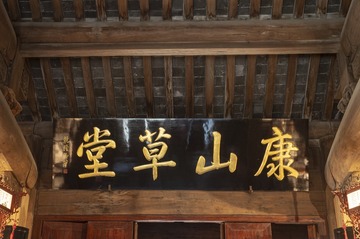 康山草堂